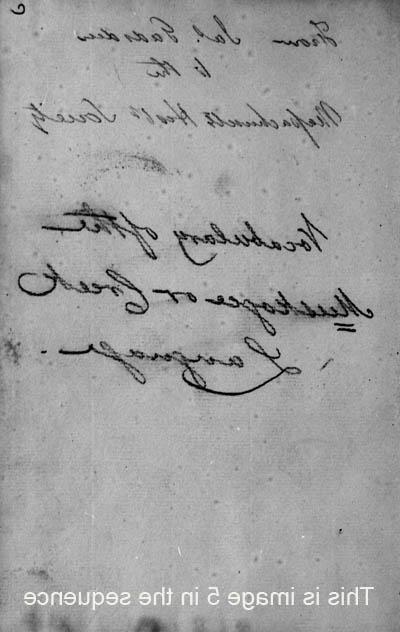 From Jas. Gaardner
to the
Massachusetts Hist. Society
Vocabulary of the
Muskogee or Creek
Language.
This is image 5 in the sequence